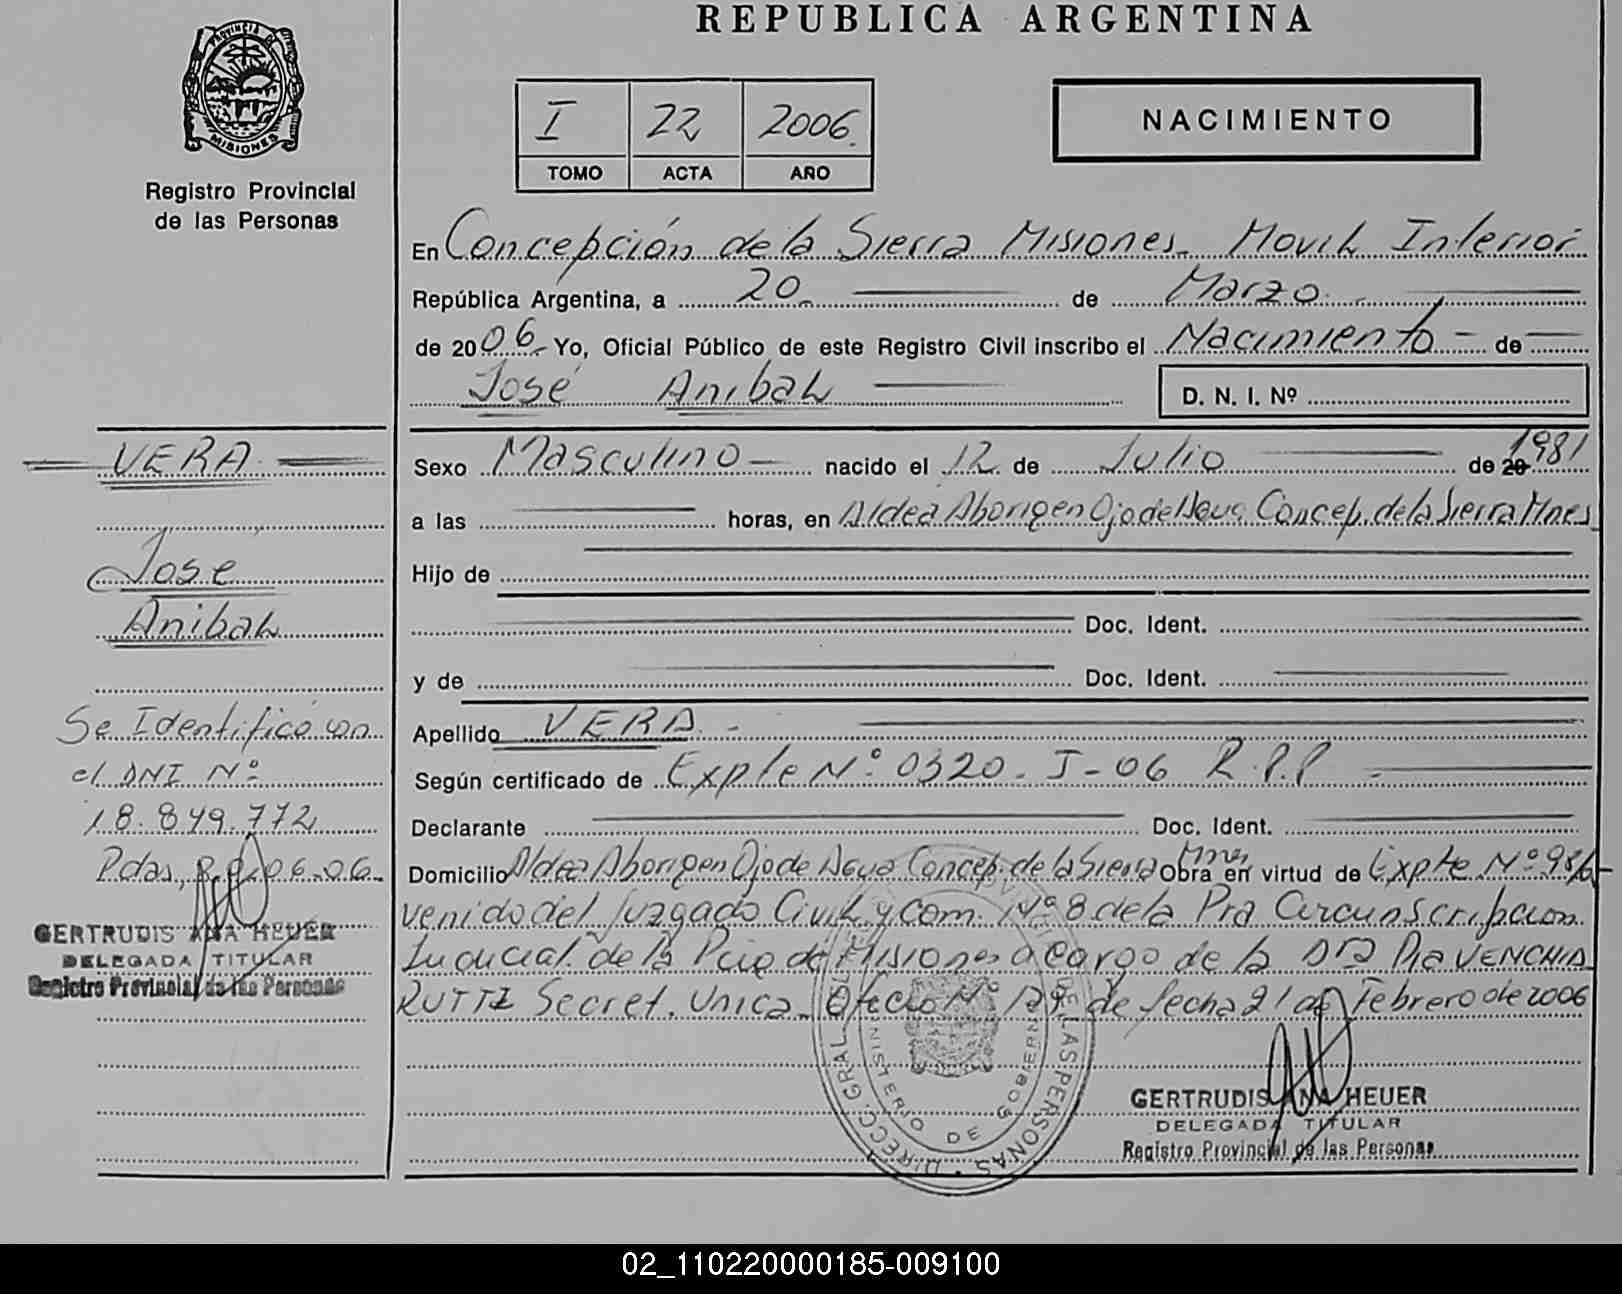 REPUBLICA ARGENTINA
PROVINCIA DE
MISIONES
Registro Provincial
de las Personas
I 22 2006.
TOMO ACTA AÑO
NACIMIENTO
En Concepción de la Sierra Misiones. Movil Interior
República Argentina, a 20. de Marzo.
de 2006. Yo, Oficial Público de este Registro Civil inscribo el Nacimiento de
José Anibal D. N. I. Nº
VERA
Jose
Anibal
Se Identificó con
el DNI Nº
18.849.772
Pdas, 06-06.
GERTRUDIS ANA HEUER
DELEGADA TITULAR
Registro Provincial de las Personas
Sexo Masculino nacido el 12 de Julio de 20 1981
a las horas, en Aldea Aborigen Ojo de Agua Concep. de la Sierra Mnes
Hijo de
Doc. Ident.
y de Doc. Ident.
Apellido VERA.
Según certificado de Expte Nº 0320-I-06 R.P.P
Declarante Doc. Ident.
Domicilio Aldea Aborigen Ojo de Agua Concep. de la Sierra Mnes Obra en virtud de Expte Nº 98/6
venido del Juzgado Civil y Com. Nº 8 de la Pra Circunscripcion
Judicial de la Pcia de Misiones a cargo de la Dra Pia VENCHIA
RUTTI Secret. Unica. Oficio Nº 129 de fecha 21 de Febrero de 2006
DIRECC. GRAL. DEL REG. DE LAS PERSONAS
MINISTERIO DE GOBIERNO
GERTRUDIS ANA HEUER
DELEGADA TITULAR
Registro Provincial de las Personas
02_110220000185-009100